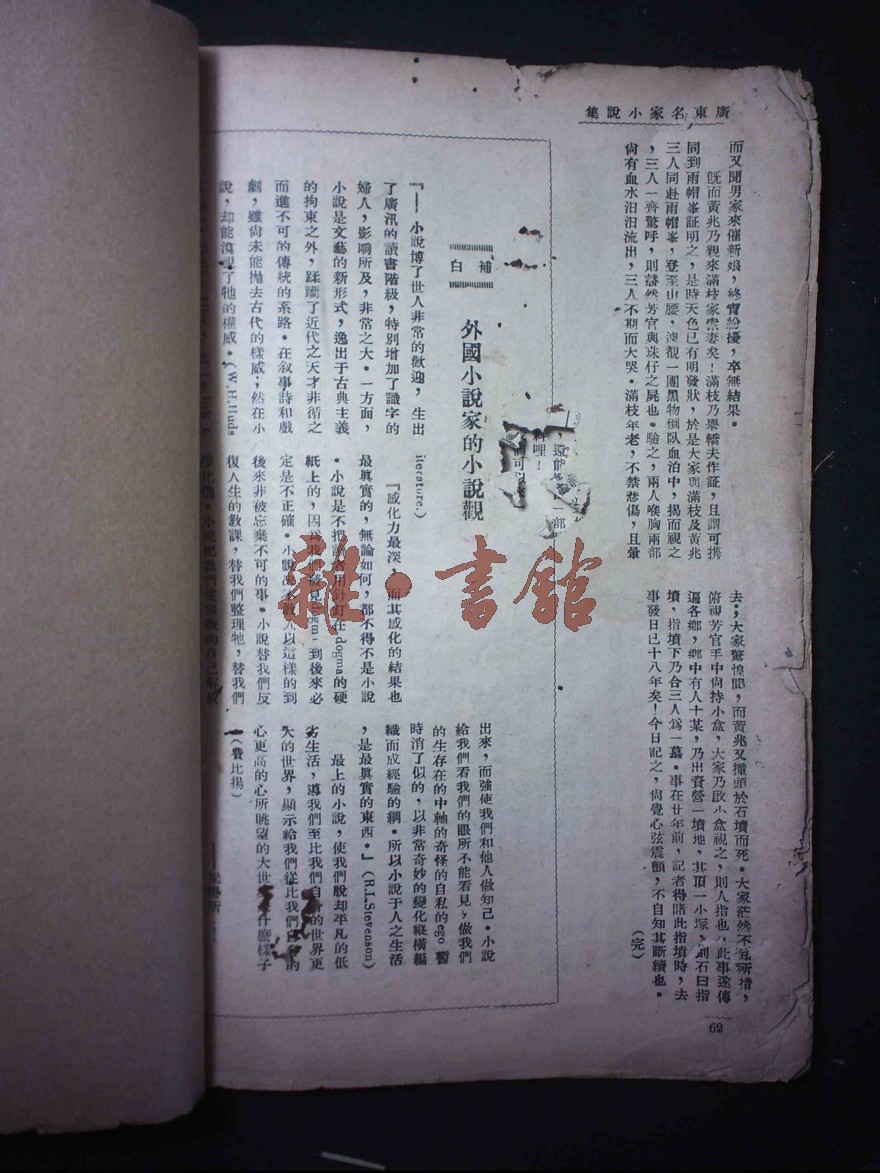 廣東名家小說集
而又聞男家來催新娘，終宵紛擾，卒無結果。
旣而黃兆乃親來滿枝家索妻矣！滿枝乃舉轎夫作証，且謂可携
同到雨帽峯証明之，是時天色已有明發狀，於是大家與滿枝及黃兆
三人同赴雨帽峯，登至山腰，遠覩一團黑物倒臥血泊中，揭而視之
，三人一齊驚呼，則赫然芳官與珠仔之屍也。驗之，兩人喉胸兩部
尙有血水汨汨流出，三人不期而大哭。滿枝年老，不禁悲傷，且暈
去；大家驚惶間，而黃兆又撞頭於石墳而死。大家茫然不知所措，
俯視芳官手中尙持小盒，大家乃啟小盒視之，則人指也，此事遂傳
遍各鄉，鄉中有人十某，乃出資營一墳地，其頂一小塚，刻石曰指
墳，指墳下乃合三人爲一墓。事在廿年前，記者得睹此指墳時，去
事發日已十八年矣！今日記之，尙覺心弦震顫，不自知其斷續也。
（完）
62
，還能 一部
料哩！
可以
補白
外國小說家的小說觀
『——小說博了世人非常的歡迎，生出
了廣汎的讀書階級，特別增加了識字的
婦人，影响所及，非常之大。一方面，
小說是文藝的新形式，逸出于古典主義
的拘束之外，蹂躪了近代之天才非循之
而進不可的傳統的系路。在叙事詩和戲
劇，雖尙未能抛去古代的樣威；然在小
說，却能漠視了牠的權威。（W.H.Huds
iterature.）
『感化力最深，而其感化的結果也
最眞實的，無論如何，都不得不是小說
。小說是不把讀者用針釘在dogma的硬
紙上的，因爲我們發見dogma，到後來必
定是不正確。小說 人以這樣的到
後來非被忘棄不可的事。小說替我們反
復人生的教課，替我們整理牠，替我們
淨化牠。小說把我們從 的自己解放
出來，而強使我們和他人做知己。小說
給我們看我們的眼所不能看見，做我們
的生存在的中軸的奇怪的自私的ego 暫
時消了似的，以非常奇妙的變化縱橫編
織而成經驗的網。所以小說于人之生活
，是最眞實的東西。』（R.L.Stevenson）
最上的小說，使我們脫却平凡的低
劣生活，導我們至比我們自身的世界更
大的世界，顯示給我們從比我們自 的
心更高的心所眺望的大世 什麽樣子
—（費比揚）
雜·書館